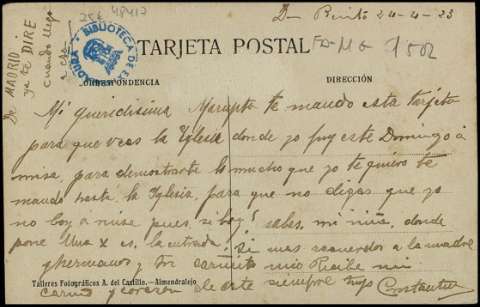 De MADRID
ya te DIRE
cuando llego
a esa
25€ 48417
Dn Benito 24-4-23
BIBLIOTECA DE EX
TARJETA POSTAL
FA-M G 1502
CORRESPONDENCIA
DIRECCIÓN
Mi queridisima te mando esta tarjeta
para que veas la Iglesia donde yo fuy este Domingo á
misa, para demostrarte lo mucho que yo te quiero te
mando hasta la Iglesia, para que no digas que yo
no boy á misa pues, si boy! sabes, mi niña, donde
pone una X es la entrada! Sin mas recuerdos a tu madre
y hermanos y tu cariñito mio Recibe mi
Talleres Fotográficos A. del Castillo.—Almendralejo
cariño y corazon de este siempre tuyo Constantino